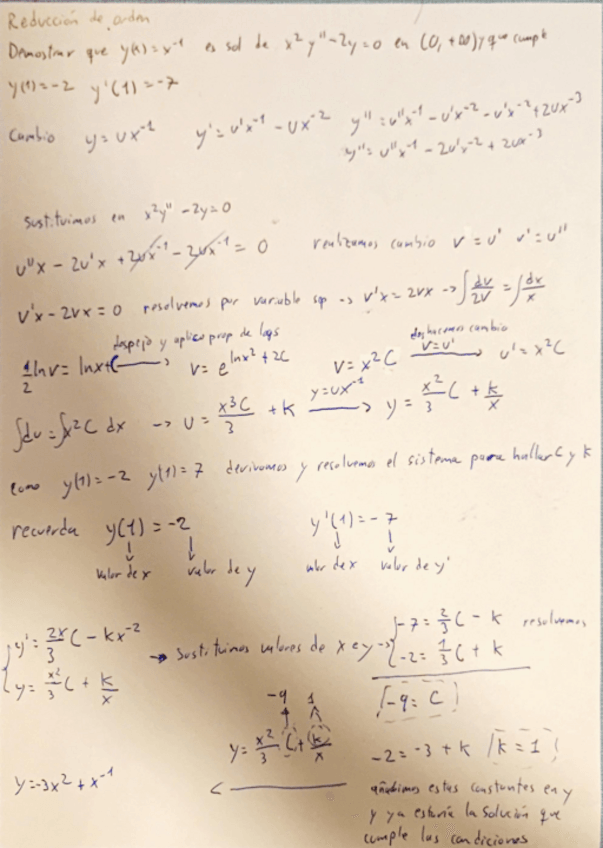 Reducción de orden
Demostrar que y(x) = x⁻¹ es sol de x² y'' - 2y = 0 en (0, +∞) y que cumple
y(1) = -2 y'(1) = -7
Cambio y = ux⁻¹ y' = u'x⁻¹ - ux⁻² y'' = u''x⁻¹ - u'x⁻² - u'x⁻² + 2ux⁻³
y'' = u''x⁻¹ - 2u'x⁻² + 2ux⁻³
Sustituimos en x²y'' - 2y = 0
u''x - 2u'x + 2ux⁻¹ - 2ux⁻¹ = 0 realizamos cambio v = u' v' = u''
v'x - 2vx = 0 resolvemos por variable sp → v'x = 2vx → ∫ dv/2v = ∫ dx/x
1/2 ln v = ln x + C despejo y aplico prop de logs → v = e^(ln x² + 2C) v = x²C deshacemos cambio v = u' → u' = x²C
∫du = ∫x²C dx → u = x³C/3 + k y = ux⁻¹ → y = x²/3 C + k/x
como y(1) = -2 y(1) = 7 derivamos y resolvemos el sistema para hallar C y k
recuerda y(1) = -2 y'(1) = -7
↓ ↓ ↓ ↓
valor de x valor de y valor de x valor de y'
{ y' = 2x/3 C - kx⁻² → Sustituimos valores de x e y → { -7 = 2/3 C - k resolvemos
y = x²/3 C + k/x -2 = 1/3 C + k
-9 = C
-9 1
y = x²/3 C + k/x -2 = -3 + k k = 1
y = -3x² + x⁻¹ ← añadimos estas constantes en y
y ya estaría la solución que
cumple las condiciones